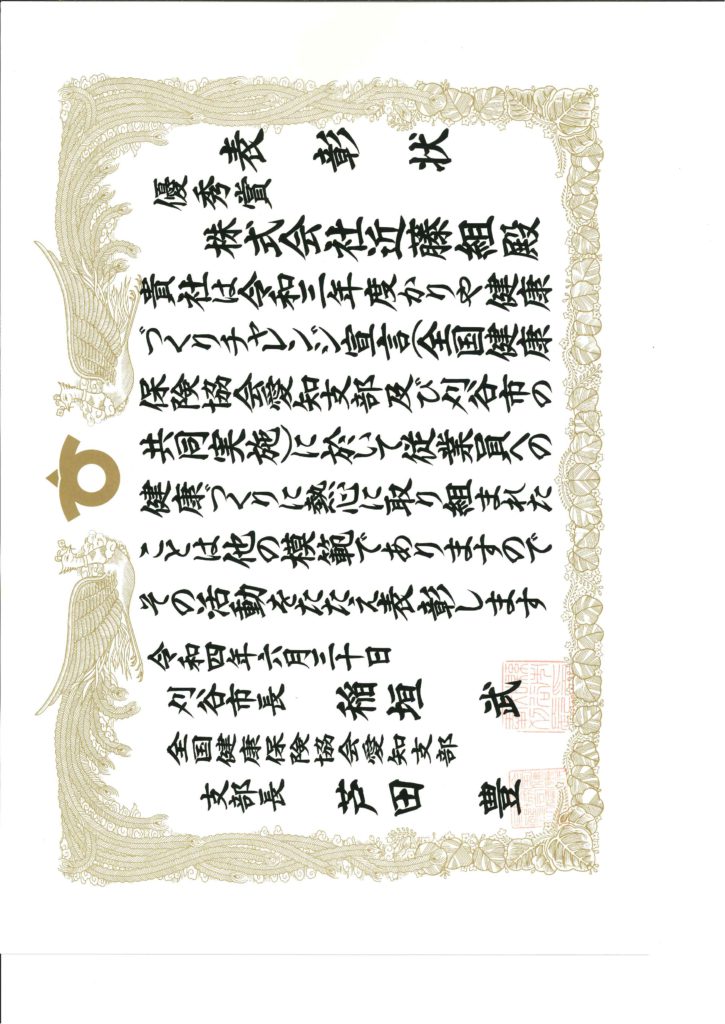 表彰状
優秀賞
株式会社近藤組殿
貴社は令和三年度かりや健康
づくりチャレンジ宣言(全国健康
保険協会愛知支部及び刈谷市の
共同実施)に於いて従業員への
健康づくりに熱心に取り組まれた
ことは他の模範でありますので
その活動をたたえ表彰します
令和四年六月三十日
刈谷市長 稲垣武
全国健康保険協会愛知支部
支部長 芦田豊